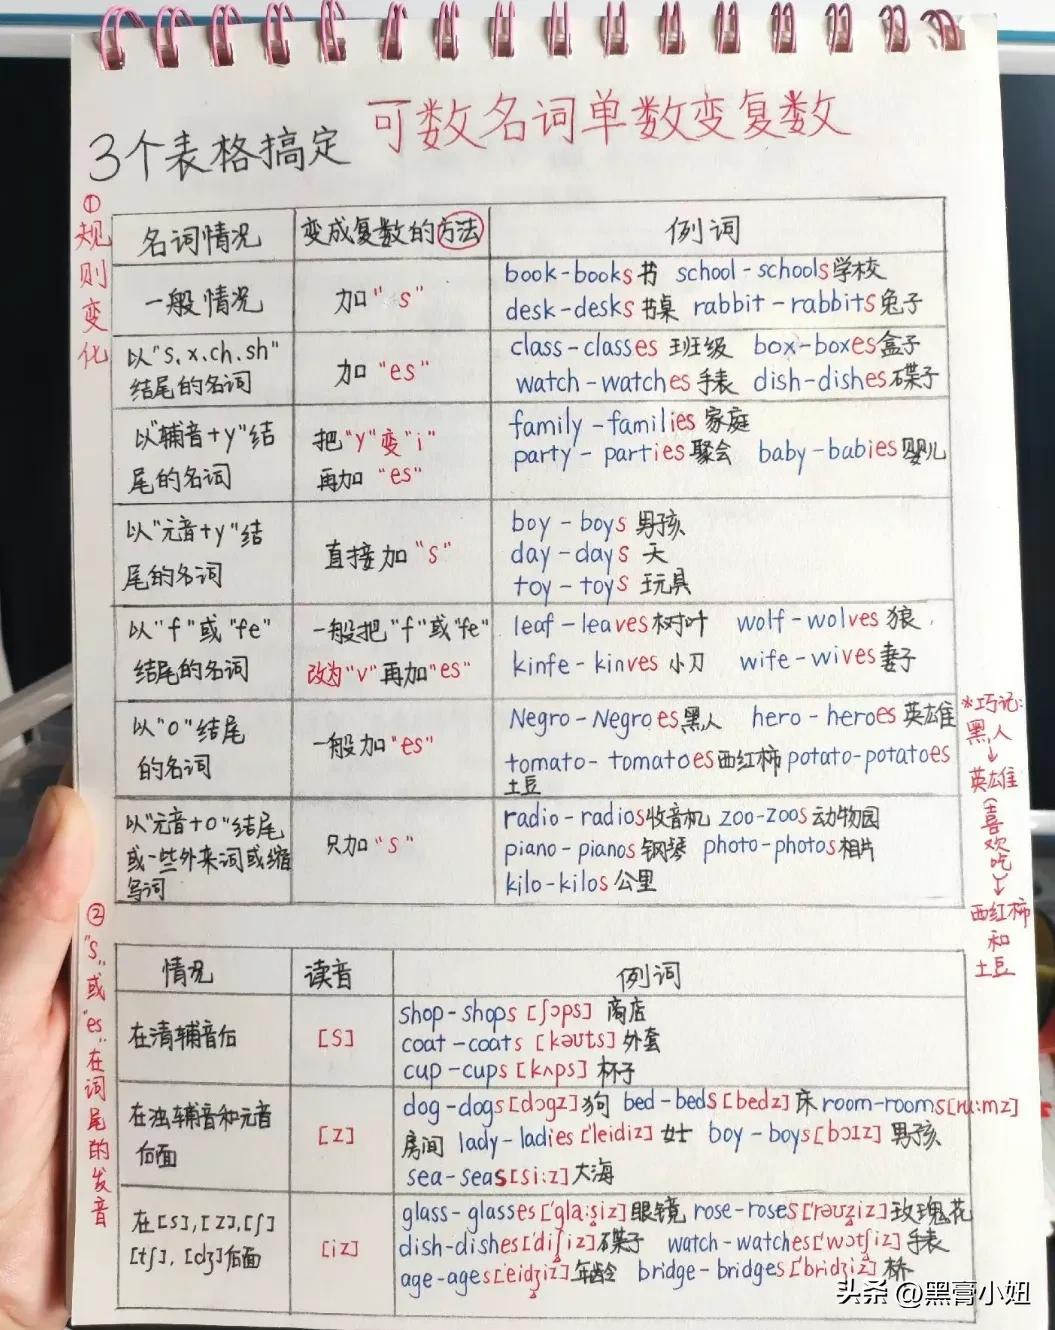 3个表格搞定 可数名词单数变复数
①规则变化
名词情况 变成复数的方法 例词
一般情况 加"s" book-books书 school-schools学校
desk-desks书桌 rabbit-rabbits兔子
以"s.x.ch.sh"
结尾的名词 加"es" class-classes 班级 box-boxes盒子
watch-watches手表 dish-dishes碟子
以"辅音+y"结
尾的名词 把"y"变"i"
再加"es" family-families 家庭
party-parties聚会 baby-babies婴儿
以"元音+y"结
尾的名词 直接加"s" boy-boys 男孩
day-days 天
toy-toys 玩具
以"f"或"fe"
结尾的名词 一般把"f"或"fe"
改为"v"再加"es" leaf-leaves树叶 wolf-wolves 狼
kinfe-kinves 小刀 wife-wives妻子
以"o"结尾
的名词 一般加"es" Negro-Negroes黑人 hero-heroes 英雄
tomato-tomatoes西红柿 potato-potatoes
土豆
*巧记:
黑人
↓
英雄
(喜欢吃
↓
西红柿
和
土豆
以"元音+o"结尾
或一些外来词或缩
写词 只加"s" radio-radios收音机 zoo-zoos动物园
piano-pianos钢琴 photo-photos相片
kilo-kilos公里
②"s"或"es"在词尾的发音
情况 读音 例词
在清辅音后 [S] shop-shops [ʃɔps] 商店
coat-coats [kəʊts]外套
cup-cups [kʌps] 杯子
在浊辅音和元音
后面 [Z] dog-dogs[dɔgz]狗 bed-beds[bedz]床 room-rooms[ru:mz]
房间 lady-ladies['leidiz]女士 boy-boys[bɔɪz]男孩
sea-seas[si:z]大海
在[s],[z],[ʃ]
[tʃ],[dʒ]后面 [iz] glass-glasses['gla:siz]眼镜 rose-roses['rəʊziz]玫瑰花
dish-dishes['diʃiz]碟子 watch-watches['wɔtʃiz]手表
age-ages[eidʒiz]年龄 bridge-bridges['bridʒiz]桥
头条 @黑膏小妞